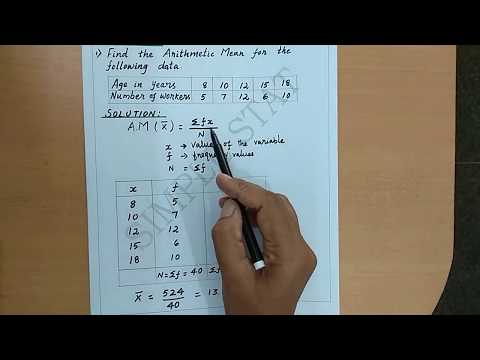 1) Find the Arithmetic Mean for the
following data
Age in years 8 10 12 15 18
Number of workers 5 7 12 6 10
SOLUTION:
A.M (x̄) = Σfx
N
x → values of the variable
f → frequency values
N = Σf
x f
8 5
10 7
12 12
15 6
18 10
N=Σf = 40 Σf
x̄ = 524 = 13.
40
SIMPLE STAT